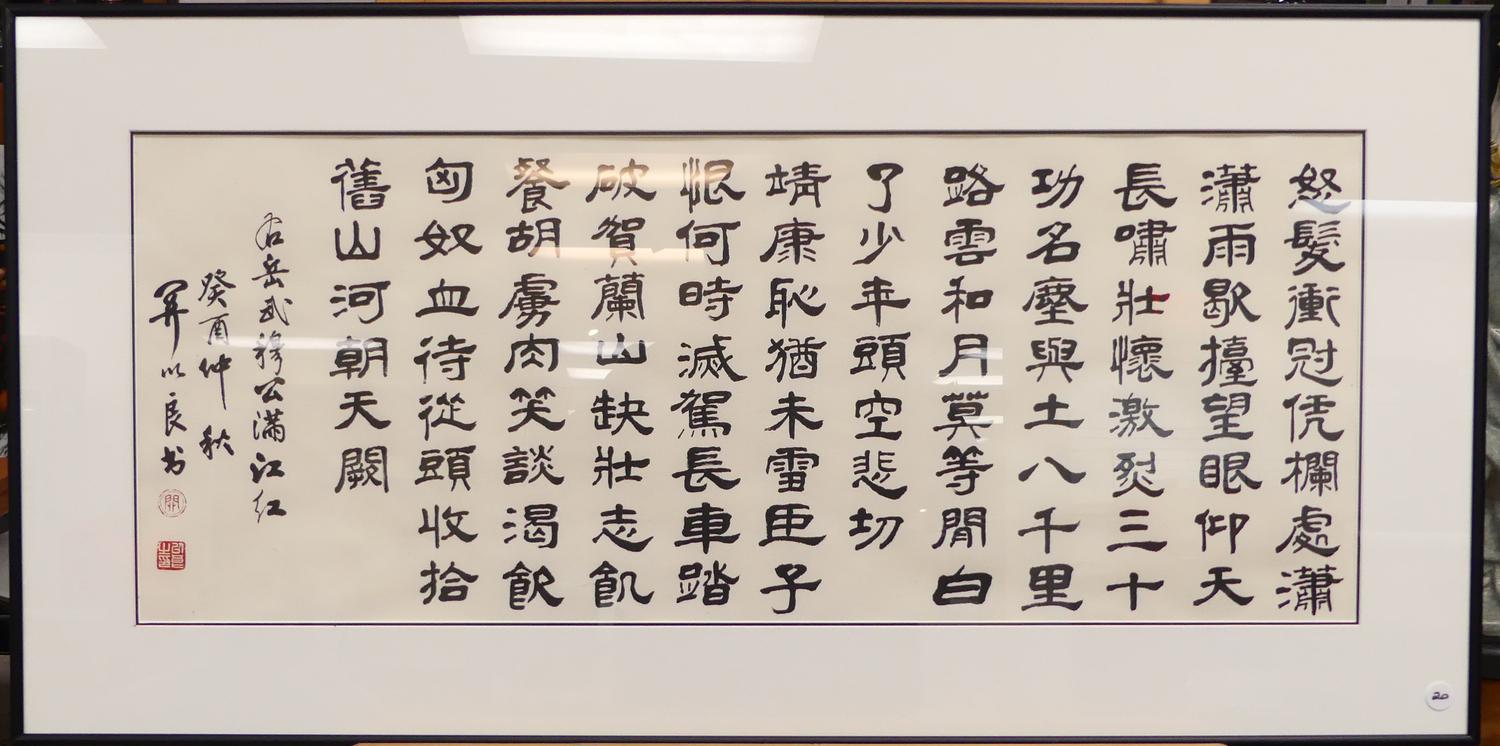 怒髮衝冠凭欄處瀟
瀟雨歇擡望眼仰天
長嘯壯懷激烈三十
功名塵與土八千里
路雲和月莫等閒白
了少年頭空悲切
靖康恥猶未雪臣子
恨何時滅駕長車踏
破賀蘭山缺壯志飢
餐胡虜肉笑談渴飲
匈奴血待從頭收拾
舊山河朝天闕
右岳武穆公满江红
癸酉仲秋
以良书
20